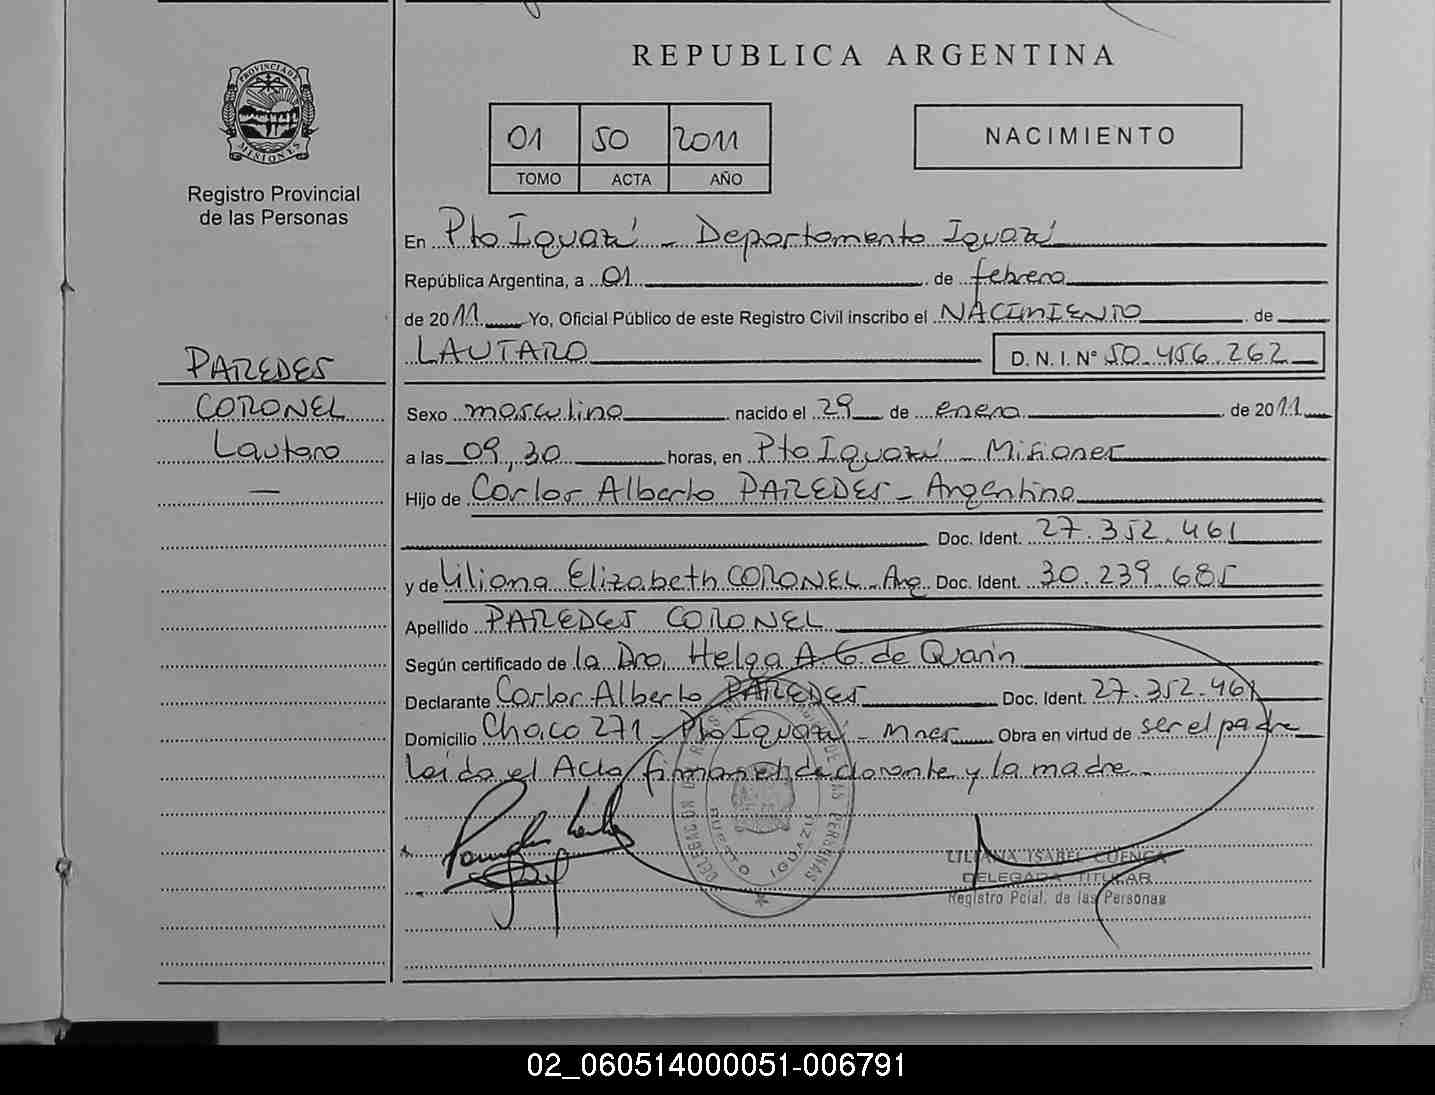 REPUBLICA ARGENTINA
PROVINCIA DE MISIONES
Registro Provincial
de las Personas
01 50 2011
TOMO ACTA AÑO
NACIMIENTO
En Pto Iguazú - Departamento Iguazú
República Argentina, a 01 de febrero
de 2011 Yo, Oficial Público de este Registro Civil inscribo el NACIMIENTO de
LAUTARO D. N. I. Nº 50.456.262
PAREDES
CORONEL
Lautaro
—
Sexo masculino nacido el 29 de enero de 2011
a las 09,30 horas, en Pto Iguazú - Misiones
Hijo de Carlos Alberto PAREDES - Argentino
Doc. Ident. 27.352.461
y de Liliana Elizabeth CORONEL - Arg. Doc. Ident. 30.239.685
Apellido PAREDES CORONEL
Según certificado de la Dra. Helga A G. de Quarin
Declarante Carlos Alberto PAREDES Doc. Ident. 27.352.461
Domicilio Chaco 271 - Pto Iguazú - Mnes Obra en virtud de ser el padre
Leída el Acta firman el declarante y la madre -
DELEGACIÓN DE LAS PERSONAS
PUERTO IGUAZU
LILIANA ISABEL CUENCA
DELEGADA TITULAR
Registro Pcial. de las Personas
02_060514000051-006791